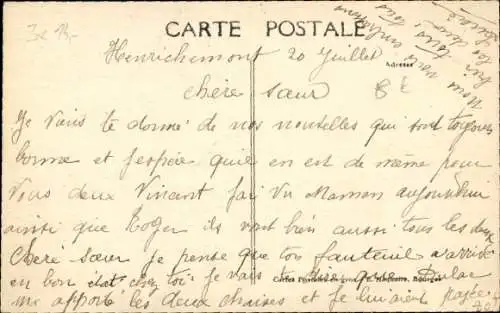 CARTE POSTALE
Henrichemont 20 Juillet
Chère Sœur
Je viens te donné de nos nouvelles qui sont toujours
bonne et j'espère qu'il en est de même pour
vous deux Vincent j'ai vu Maman aujourd'hui
ainsi que Roger ils vont bien aussi tous les deux
Chère Sœur je pense que ton fauteuil a arrivé
en bon état chez toi je vais te dire que Dulac
me apporté les deux chaises et je lui aient payée
Nous vous embrassons
tous